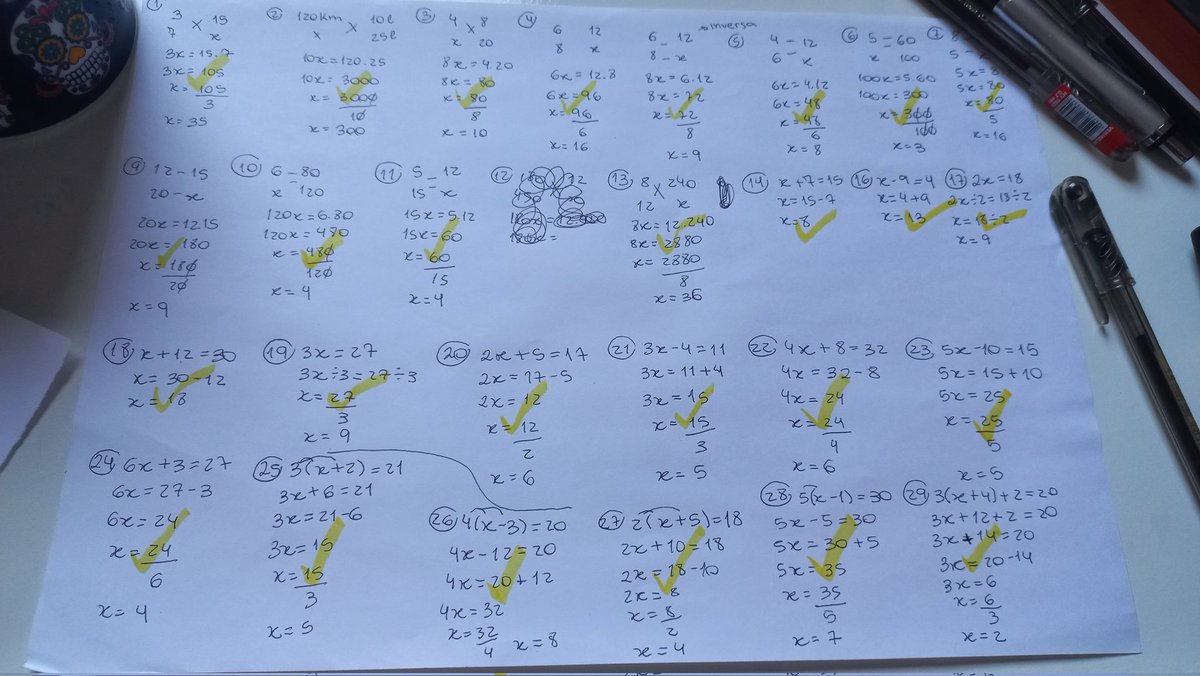 ① 3 × 15
7 x
3x=15.7
3x=105
x=105/3
x=35
② 120km × 10l
x 25l
10x=120.25
10x=3000
x=3000/10
x=300
③ 4 × 8
x 20
8x=4.20
8x=80
x=80/8
x=10
④ 6 12
8 x
6x=12.8
6x=96
x=96/6
x=16
6 – 12 inversa
8 – x
8x=6.12
8x=72
x=72/8
x=9
⑤ 4 – 12
6 – x
6x=4.12
6x=48
x=48/6
x=8
⑥ 5 – 60
x 100
100x=5.60
100x=300
x=300/100
x=3
5x=80
x=80/5
x=16
⑨ 12 – 15
20 – x
20x=12.15
20x=180
x=180/20
x=9
⑩ 6 – 80
x – 120
120x=6.80
120x=480
x=480/120
x=4
⑪ 5 – 12
15 – x
15x=5.12
15x=60
x=60/15
x=4
⑫
⑬ 8 × 240
12 x
8x=12.240
8x=2880
x=2880/8
x=36
⑭ x+7=15
x=15-7
x=8
⑯ x-9=4
x=4+9
x=13
⑰ 2x=18
2x÷2=18÷2
x=18÷2
x=9
⑱ x+12=30
x=30-12
x=18
⑲ 3x=27
3x÷3=27÷3
x=27/3
x=9
⑳ 2x+5=17
2x=17-5
2x=12
x=12/2
x=6
㉑ 3x-4=11
3x=11+4
3x=15
x=15/3
x=5
㉒ 4x+8=32
4x=32-8
4x=24
x=24/4
x=6
㉓ 5x-10=15
5x=15+10
5x=25
x=25/5
x=5
㉔ 6x+3=27
6x=27-3
6x=24
x=24/6
x=4
㉕ 3(x+2)=21
3x+6=21
3x=21-6
3x=15
x=15/3
x=5
㉖ 4(x-3)=20
4x-12=20
4x=20+12
4x=32
x=32/4 x=8
㉗ 2(x+5)=18
2x+10=18
2x=18-10
2x=8
x=8/2
x=4
㉘ 5(x-1)=30
5x-5=30
5x=30+5
5x=35
x=35/5
x=7
㉙ 3(x+4)+2=20
3x+12+2=20
3x+14=20
3x=20-14
3x=6
x=6/3
x=2